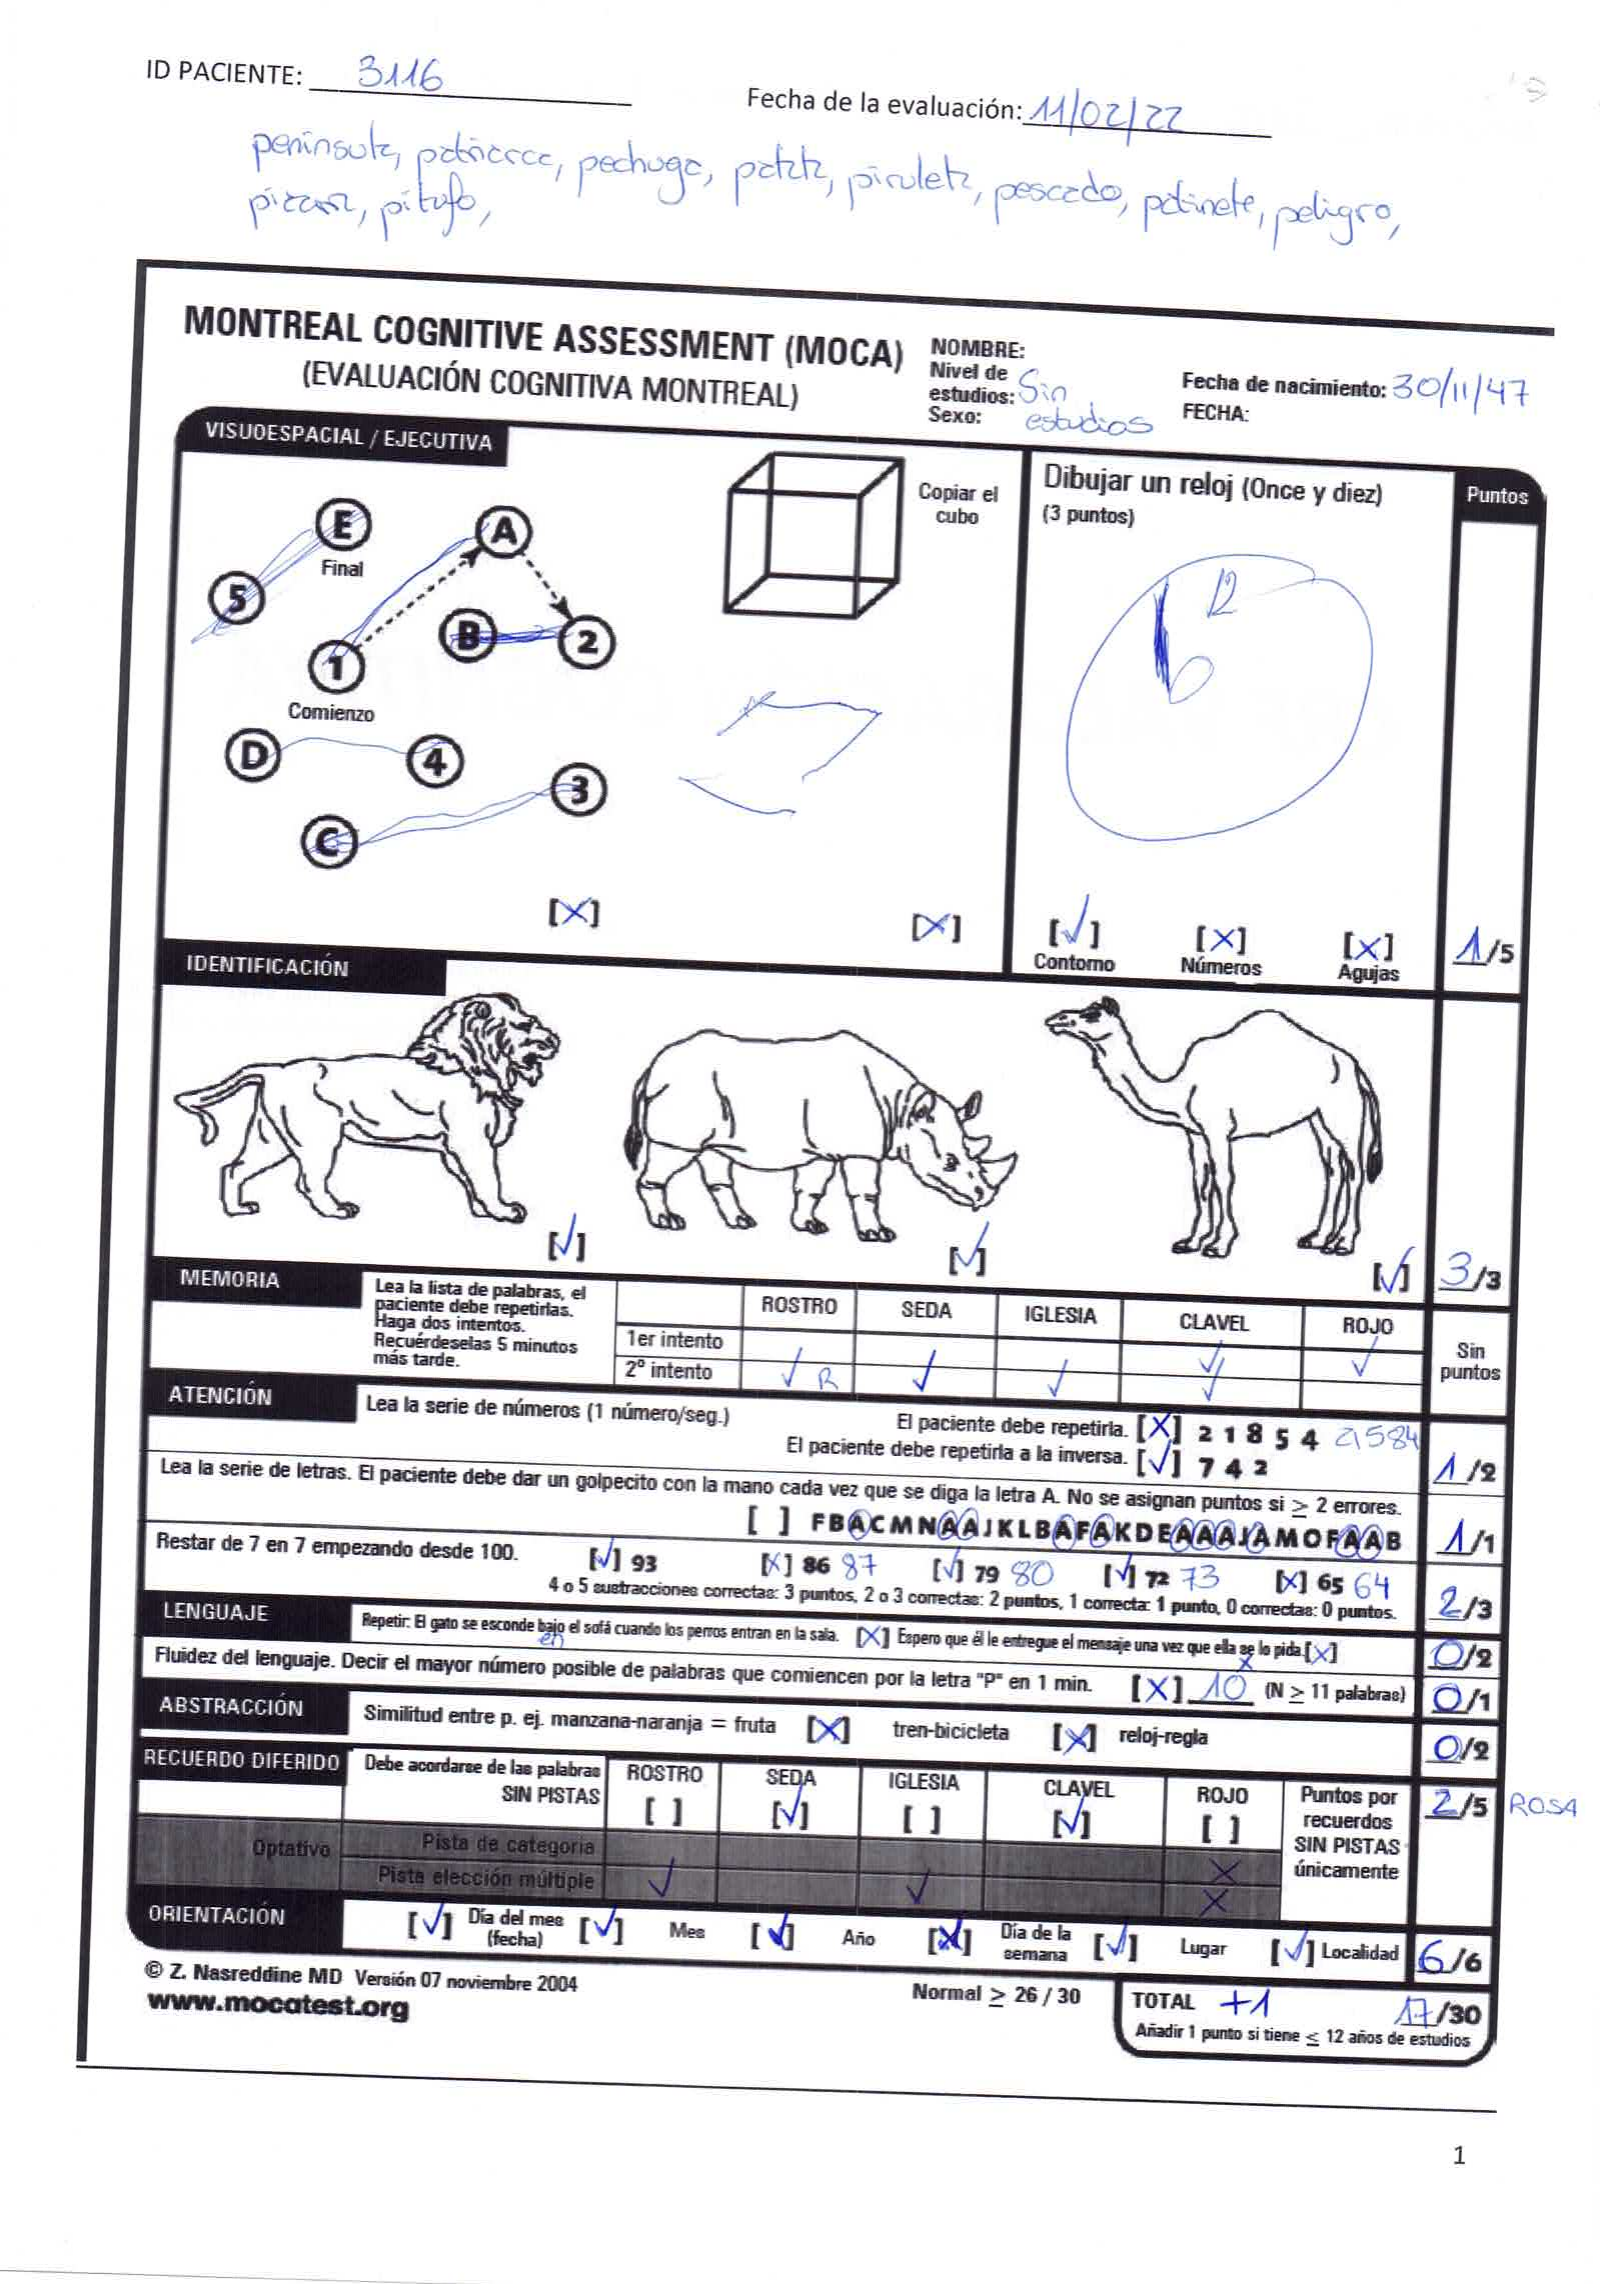 ID PACIENTE: 3116
Fecha de la evaluación: 11/02/22
península, patriarca, pechuga, patata, piruleta, pescado, patinete, peligro,
pizarra, pitufo,
MONTREAL COGNITIVE ASSESSMENT (MOCA)
(EVALUACIÓN COGNITIVA MONTREAL)
NOMBRE:
Nivel de
estudios: Sin
Sexo: estudios
Fecha de nacimiento: 30/11/47
FECHA:
VISUOESPACIAL / EJECUTIVA
E
Final
A
5
B
2
1
Comienzo
D
4
3
C
[X]
Copiar el
cubo
[X]
Dibujar un reloj (Once y diez)
(3 puntos)
12
6
[✓] Contorno
[X] Números
[X] Agujas
Puntos
1/5
IDENTIFICACIÓN
[✓]
[✓]
[✓]
3/3
MEMORIA
Lea la lista de palabras, el
paciente debe repetirlas.
Haga dos intentos.
Recuérdeselas 5 minutos
más tarde.
ROSTRO SEDA IGLESIA CLAVEL ROJO
1er intento ✓ ✓
2º intento ✓ R ✓ ✓ ✓
Sin
puntos
ATENCIÓN
Lea la serie de números (1 número/seg.)
El paciente debe repetirla. [X] 2 1 8 5 4 21584
El paciente debe repetirla a la inversa. [✓] 7 4 2
1/2
Lea la serie de letras. El paciente debe dar un golpecito con la mano cada vez que se diga la letra A. No se asignan puntos si ≥ 2 errores.
[ ] FBACMNAAJKLBAFAKDEAAAJAMOFAAB
1/1
Restar de 7 en 7 empezando desde 100. [✓] 93 [X] 86 87 [✓] 79 80 [✓] 72 73 [X] 65 64
4 o 5 sustracciones correctas: 3 puntos, 2 o 3 correctas: 2 puntos, 1 correcta: 1 punto, 0 correctas: 0 puntos.
2/3
LENGUAJE
Repetir: El gato se esconde bajo el sofá cuando los perros entran en la sala. [X] Espero que él le entregue el mensaje una vez que ella se lo pida.[X]
en x
0/2
Fluidez del lenguaje. Decir el mayor número posible de palabras que comiencen por la letra "P" en 1 min. [X] 10 (N ≥ 11 palabras)
0/1
ABSTRACCIÓN
Similitud entre p. ej. manzana-naranja = fruta [X] tren-bicicleta [X] reloj-regla
0/2
RECUERDO DIFERIDO
Debe acordarse de las palabras
SIN PISTAS
ROSTRO SEDA IGLESIA CLAVEL ROJO
[ ] [✓] [ ] [✓] [ ]
Puntos por
recuerdos
SIN PISTAS
únicamente
2/5 ROSA
Optativo
Pista de categoria X
Pista elección múltiple ✓ ✓ X
ORIENTACIÓN
[✓] Día del mes (fecha) [✓] Mes [✓] Año [X] Día de la semana [✓] Lugar [✓] Localidad
6/6
© Z. Nasreddine MD Versión 07 noviembre 2004
www.mocatest.org
Normal ≥ 26 / 30
TOTAL +1 17/30
Añadir 1 punto si tiene ≤ 12 años de estudios
1